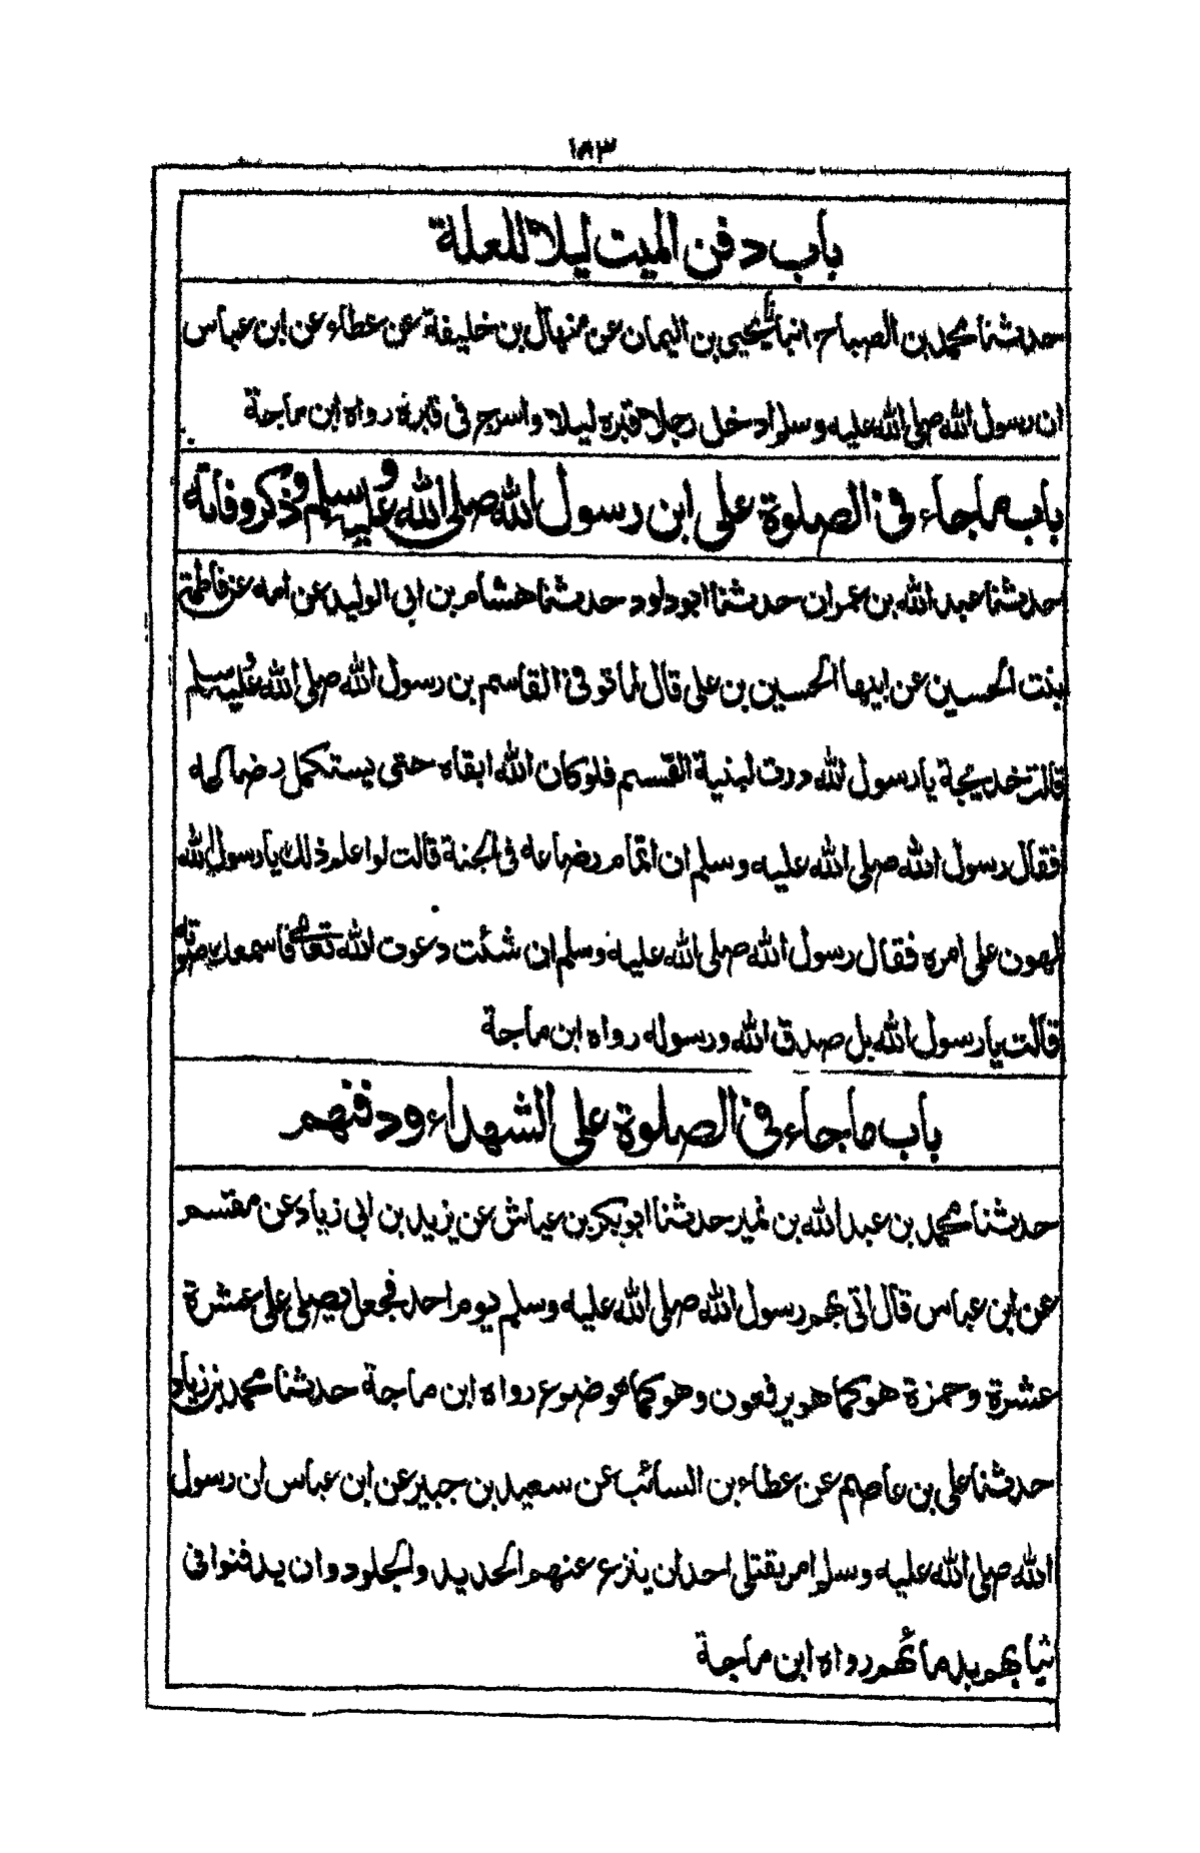 ١٨٣
باب دفن الميت ليلا للعلة
حدثنا محمد بن الصباح انبأنا يحيى بن اليمان عن منهال بن خليفة عن عطاء عن ابن عباس
ان رسول الله صلى الله عليه وسلم ادخل رجلا قبره ليلا واسرج فى قبره رواه ابن ماجة
باب ماجاء فى الصلوة على ابن رسول الله صلى الله عليه وسلم وذكر وفاته
حدثنا عبد الله بن عمران حدثنا ابوداود حدثنا هشام بن ابى الوليد عن امه عن فاطمة
بنت الحسين عن ابيها الحسين بن على قال لما توفى القاسم بن رسول الله صلى الله عليه وسلم
قالت خديجة يا رسول الله درت لبنية القسم فلو كان الله ابقاه حتى يستكمل رضاعه
فقال رسول الله صلى الله عليه وسلم ان اتمام رضاعه فى الجنة قالت لو اعلم ذلك يا رسول الله
لهون على امره فقال رسول الله صلى الله عليه وسلم ان شئت دعوت الله تعالى فاسمعك صوته
قالت يا رسول الله بل صدق الله ورسوله رواه ابن ماجة
باب ماجاء فى الصلوة على الشهداء ودفنهم
حدثنا محمد بن عبد الله بن نمير حدثنا ابو بكر بن عياش عن يزيد بن ابى زياد عن مقسم
عن ابن عباس قال اتى بهم رسول الله صلى الله عليه وسلم يوم احد فجعل يصلى على عشرة
عشرة وحمزة هو كما هو يرفعون وهو كما هو ضوع رواه ابن ماجة حدثنا محمد بن زياد
حدثنا على بن عاصم عن عطاء بن السائب عن سعيد بن جبير عن ابن عباس ان رسول
الله صلى الله عليه وسلم امر بقتلى احد ان ينزع عنهم الحديد والجلود وان يدفنوا فى
ثيابهم بدمائهم رواه ابن ماجة